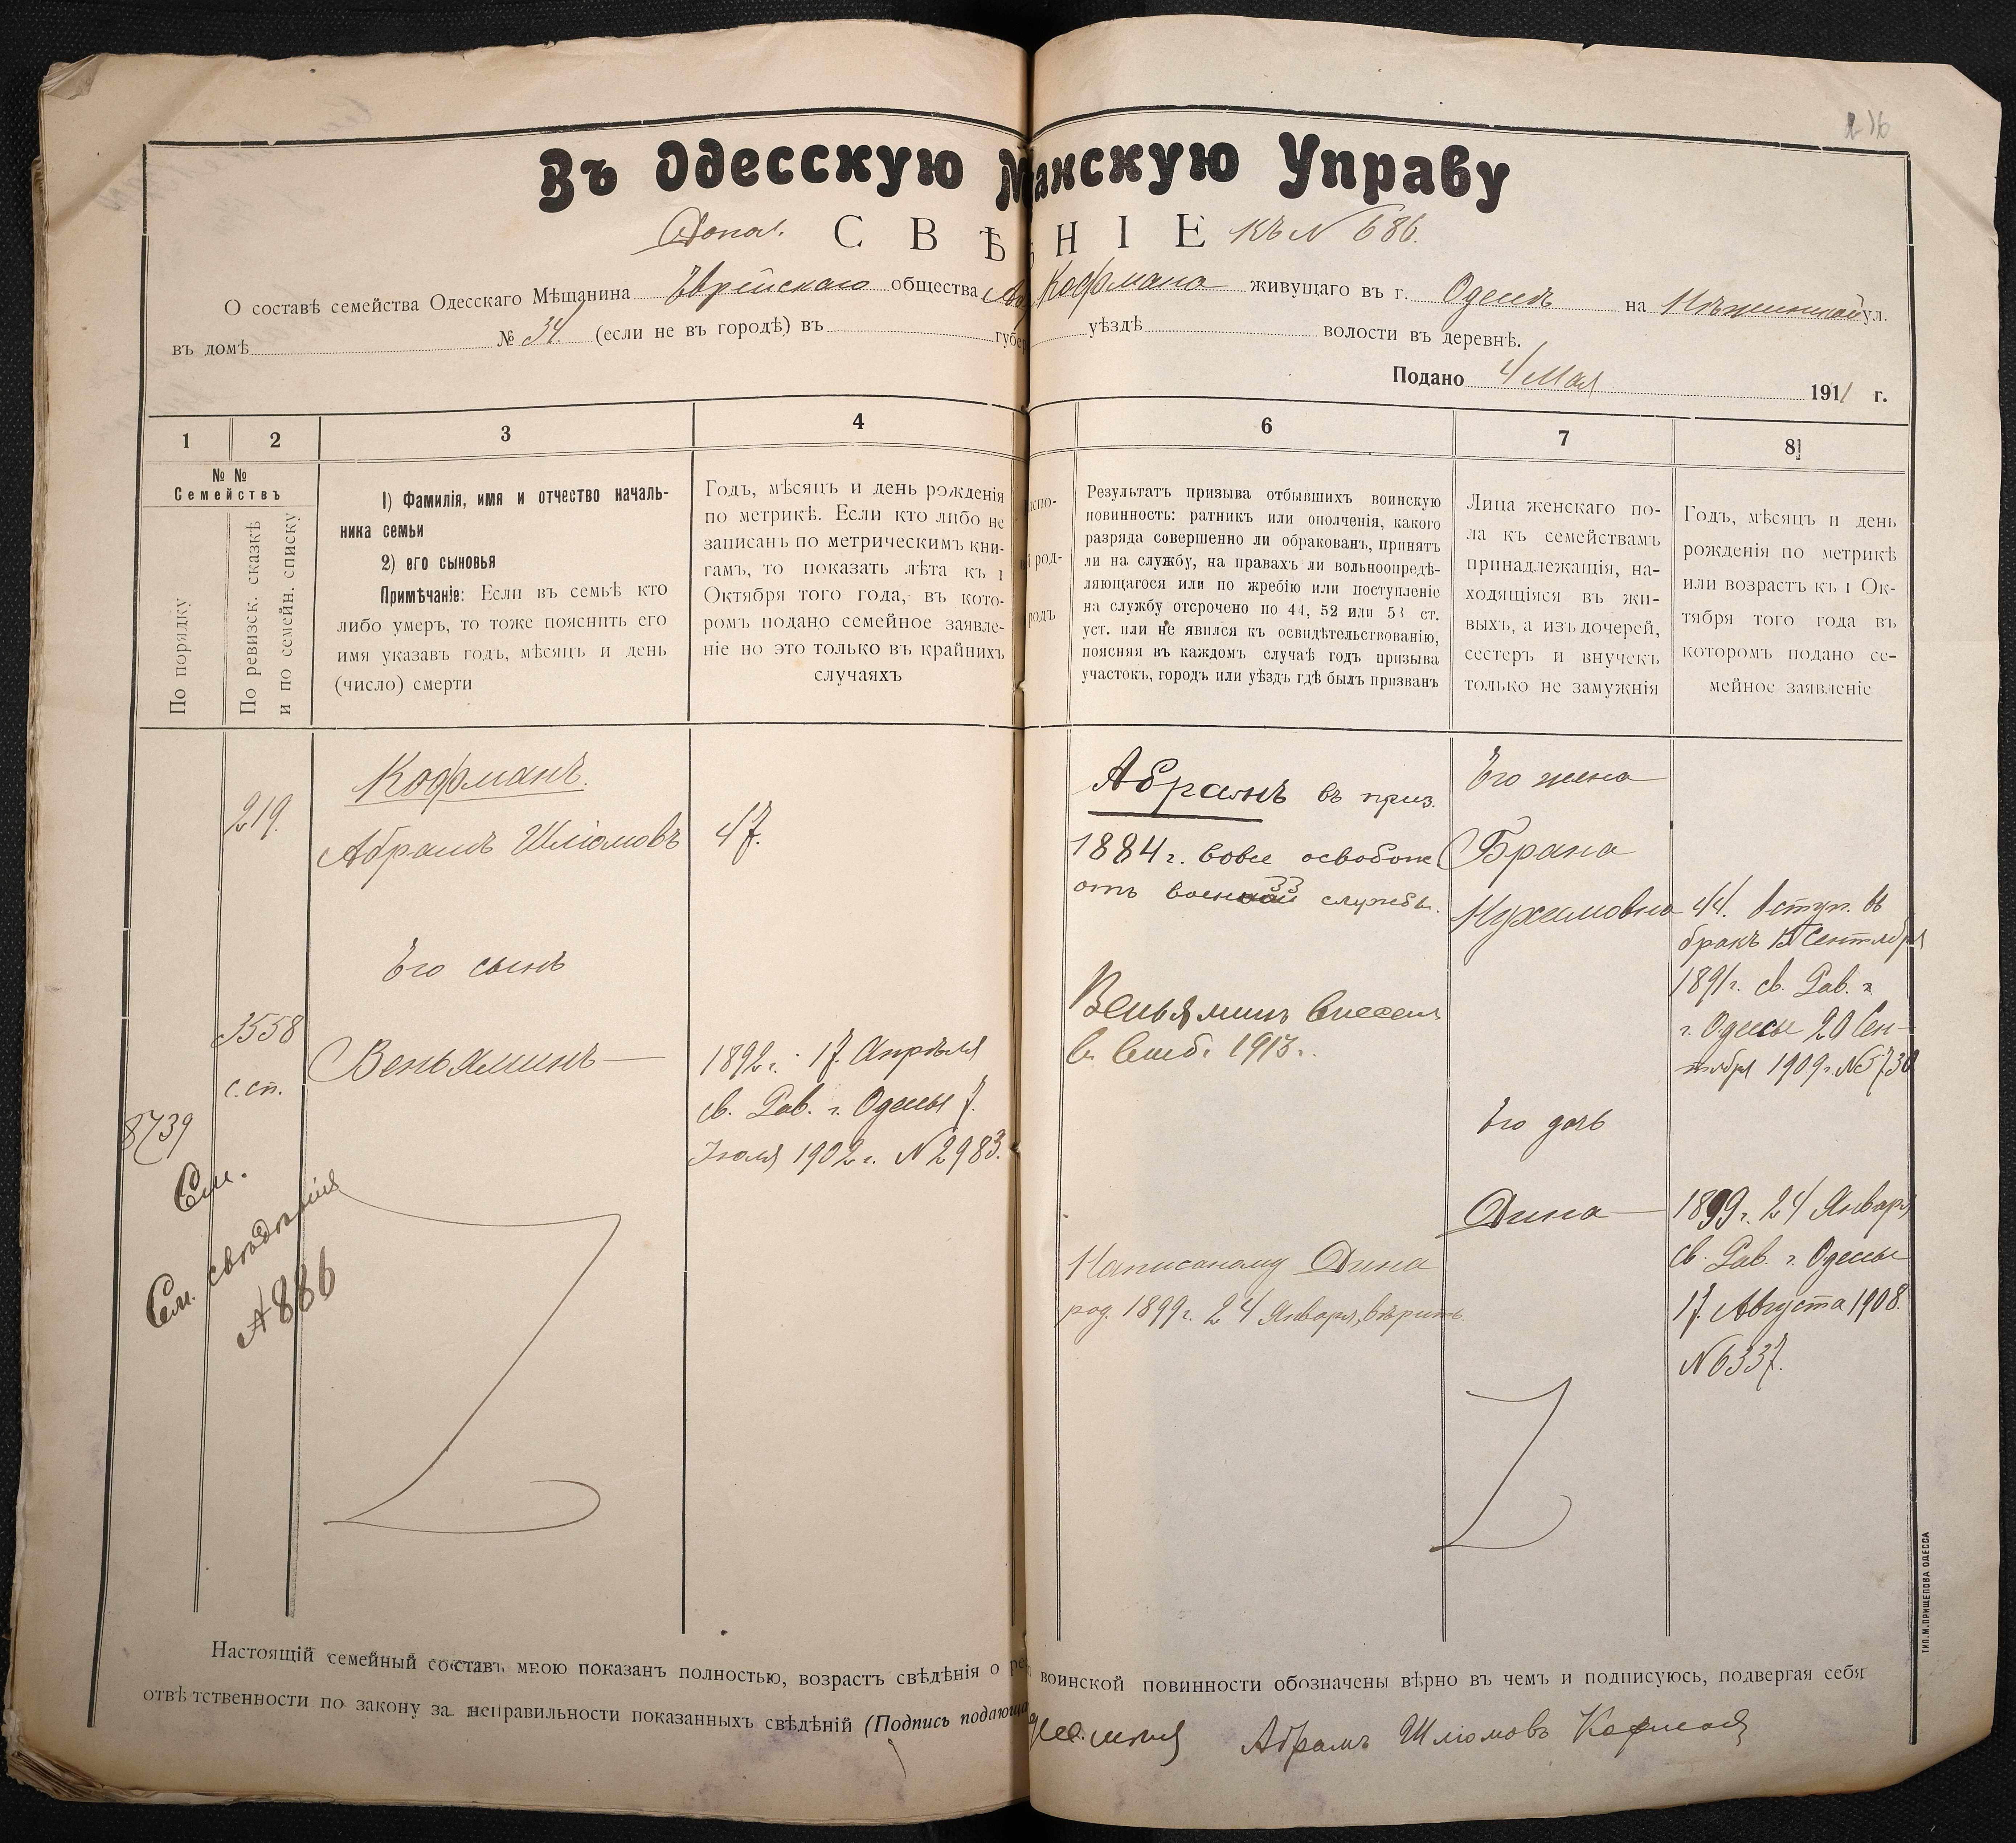 Въ Одесскую М анскую Управу
Допол. СВѢ НІЕ къ N 686.
О составѣ семейства Одесскаго Мѣщанина Еврейскаго общества Кофмана живущаго въ г. Одессѣ на Нѣжинской ул.
въ домѣ № 34 (если не въ городѣ) въ губер уѣздѣ волости въ деревнѣ.
Подано 4 Мая 1911 г.
1 2 3 4 6 7 8
№ №
Семействъ
По порядку
По ревизск. сказкѣ
и по семейн. списку
1) Фамилія, имя и отчество началь-
ника семьи
2) его сыновья
Примѣчаніе: Если въ семьѣ кто
либо умеръ, то тоже пояснить его
имя указавъ годъ, мѣсяцъ и день
(число) смерти
Годъ, мѣсяцъ и день рожденія
по метрикѣ. Если кто либо не
записанъ по метрическимъ кни-
гамъ, то показать лѣта къ 1
Октября того года, въ кото-
ромъ подано семейное заявле-
ніе но это только въ крайнихъ
случаяхъ
спо-
род-
родъ
Результатъ призыва отбывшихъ воинскую
повинность: ратникъ или ополченія, какого
разряда совершенно ли обракованъ, принятъ
ли на службу, на правахъ ли вольноопредѣ-
ляющагося или по жребію или поступленіе
на службу отсрочено по 44, 52 или 53 ст.
уст. или не явился къ освидѣтельствованію,
поясняя въ каждомъ случаѣ годъ призыва
участокъ, городъ или уѣздъ гдѣ былъ призванъ
Лица женскаго по-
ла къ семействамъ
принадлежащія, на-
ходящіяся въ жи-
выхъ, а изъ дочерей,
сестеръ и внучекъ
только не замужнія
Годъ, мѣсяцъ и день
рожденія по метрикѣ
или возрастъ къ 1 Ок-
тября того года въ
которомъ подано се-
мейное заявленіе
219.
3558
с. сп.
8739
См.
См. свѣдѣнія
N 886
Кофманъ.
Абрамъ Шліомовъ
Его сынъ
Веньяминъ
47.
1892 г. 17. Апрѣля
св. Рав. г. Одессы 7.
Іюля 1902 г. N 2983.
Абрамъ въ приз.
1884 г. вовсе освобож
отъ военной службы.
Веньяминъ внесенъ
в 1913 г.
Написаному Дина
род. 1899 г. 24 Января, вѣрить.
Его жена
Брана
Нухимовна
Его дочь
Дина
44. Вступ. въ
бракъ 15 Сентября
1891 г. св. Рав.
г. Одессы 20 Сен-
тября 1909 г. N 5730
1899 г. 24 Января
св. Рав. г. Одессы
17. Августа 1908.
N 6337.
Настоящій семейный составъ мною показанъ полностью, возрастъ свѣдѣнія о воинской повинности обозначены вѣрно въ чемъ и подписуюсь, подвергая себя
отвѣтственности по закону за неправильности показанныхъ свѣдѣній (Подпись подающа
Абрамъ Шліомовъ Кофманъ
ТИП. М. ПРИЩЕПОВА ОДЕССА